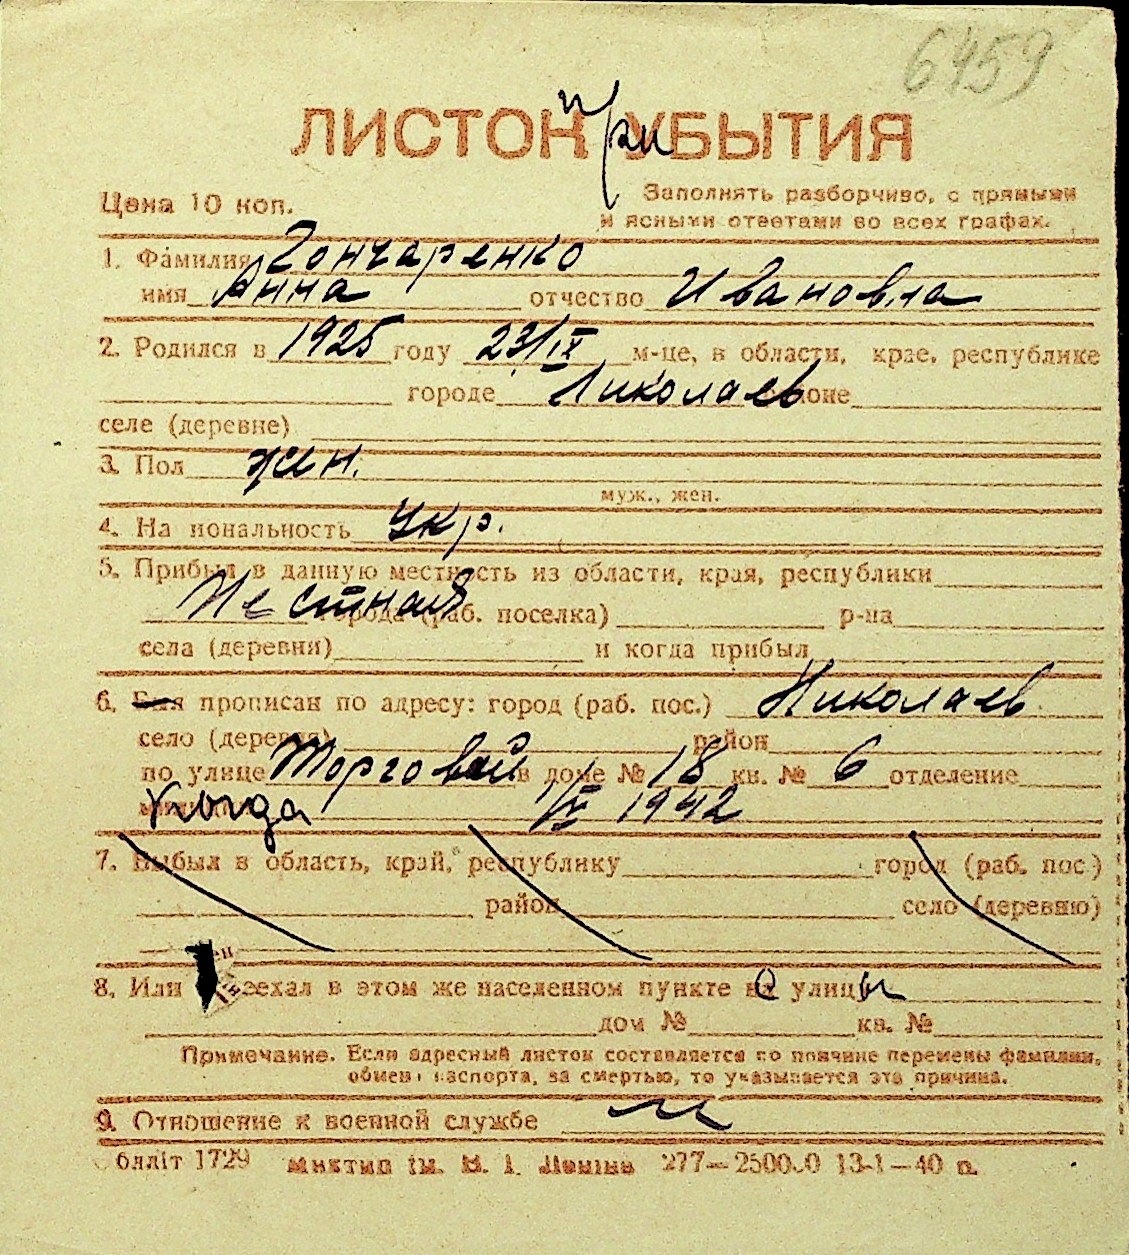 6459
ЛИСТОК при УБЫТИЯ
Цена 10 коп.
Заполнять разборчиво, с прямыми
и ясными ответами во всех графах.
1. Фамилия Гончаренко
имя Анна отчество Ивановна
2. Родился в 1925 году 23/IX м-це, в области, крае, республике
городе Николаев районе
селе (деревне)
3. Пол жен.
муж., жен.
4. На иональность Укр.
5. Прибыл в данную местность из области, края, республики
Местная города (раб. поселка) р-на
села (деревни) и когда прибыл
6. Был прописан по адресу: город (раб. пос.) Николаев
село (деревня) район
по улице Торговой в доме № 18 кв. № 6 отделение
когда 1942
7. Выбыл в область, край, республику город (раб. пос.)
район село (деревню)
8. Или еехал в этом же населенном пункте с улицы
дом № кв. №
Примечание. Если адресный листок составляется по причине перемены фамилии,
обмен паспорта, за смертью, то указывается эта причина.
9. Отношение к военной службе
облліт 1729 Миктип ім. В. І. Леніна 13-1-40 р.